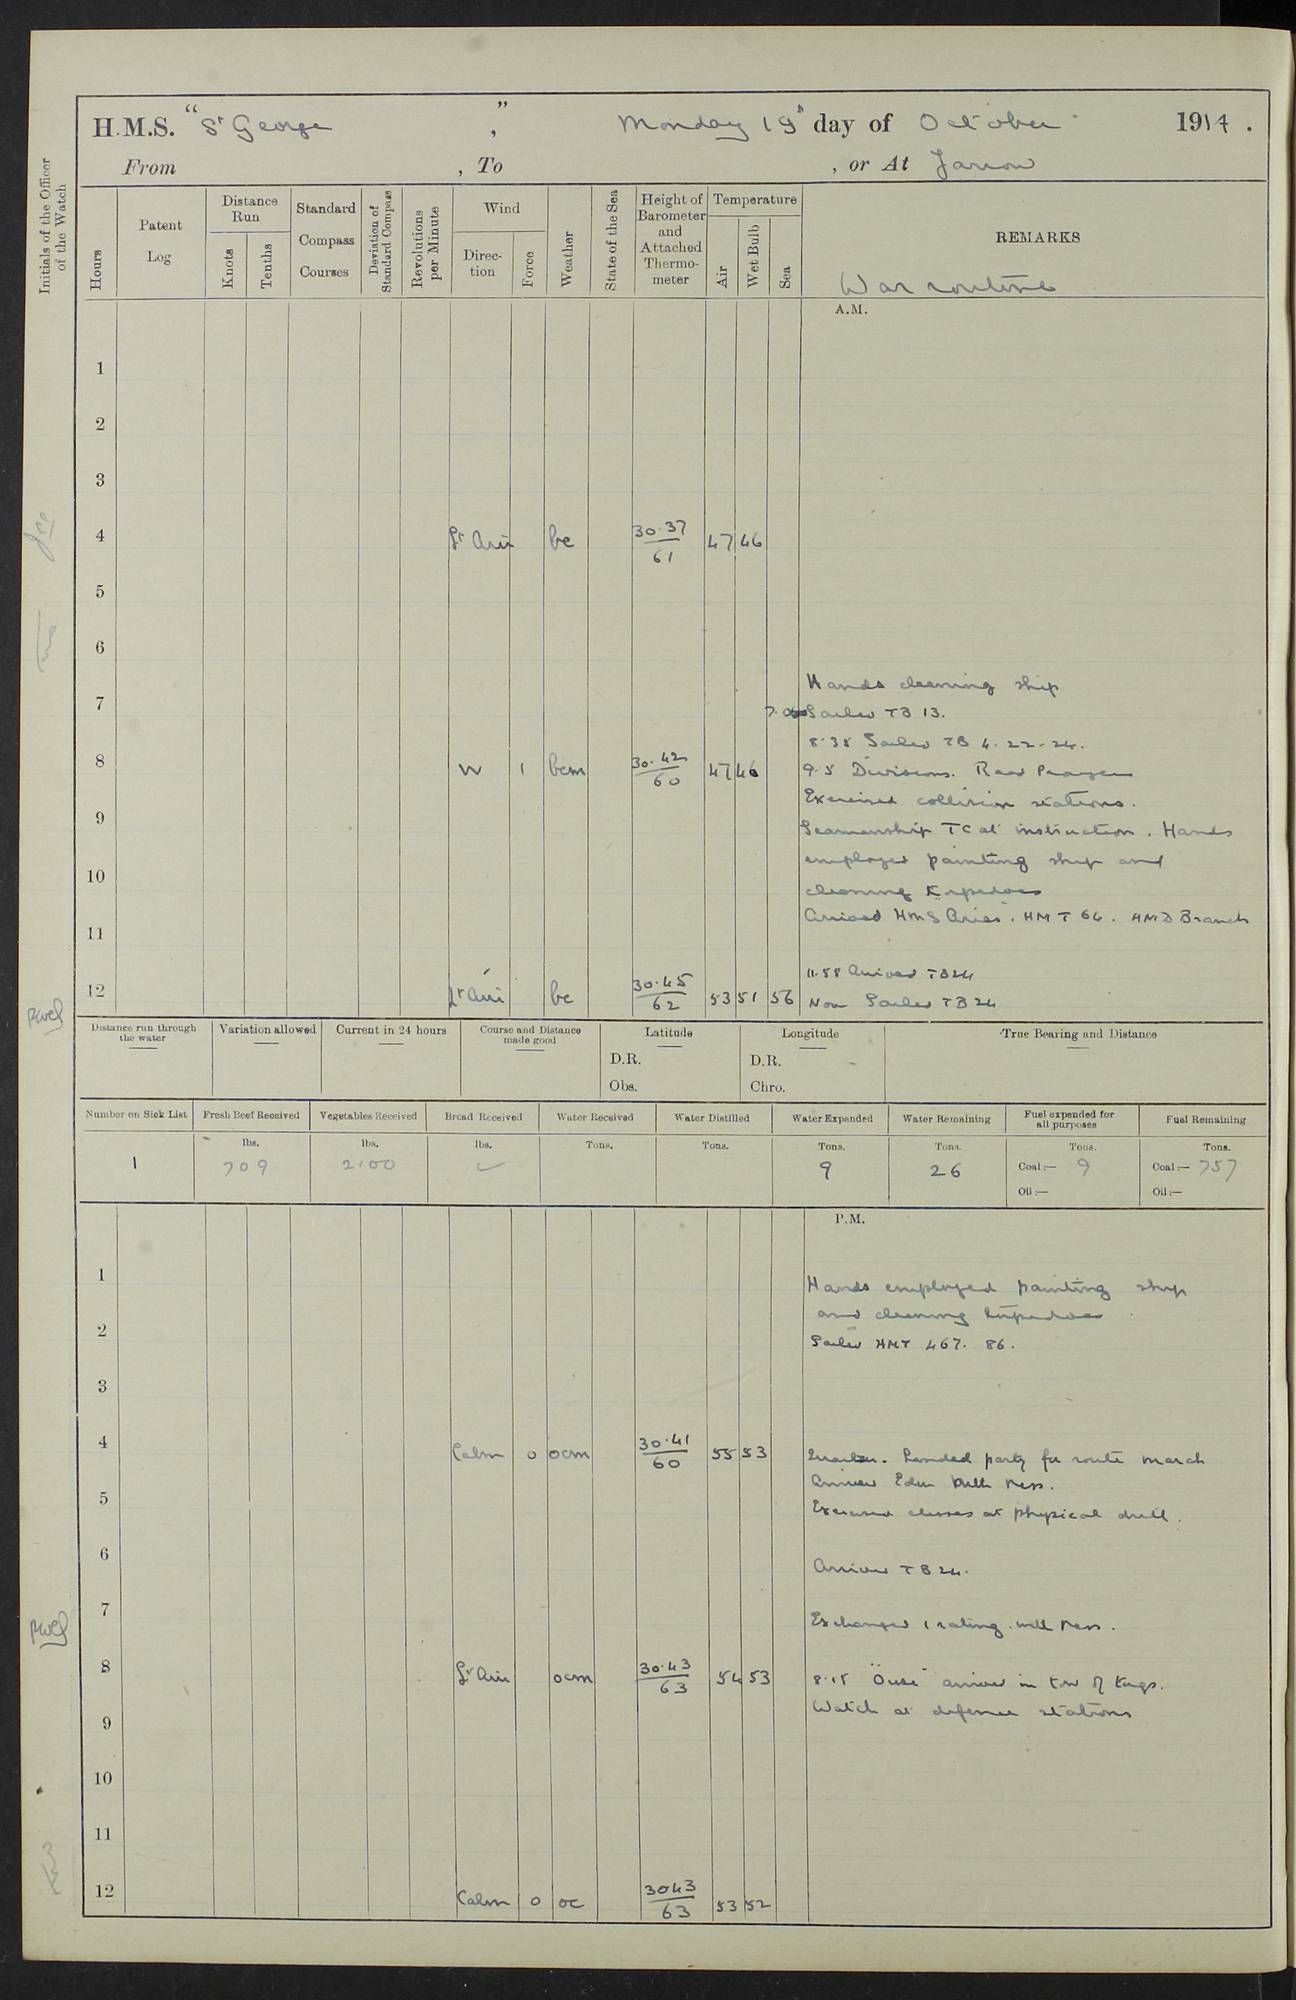 H.M.S. "St George", Monday 19th day of October 1914.
From , To , or At Jarrow
Initials of the Officer of the Watch
Hours
Patent Log
Distance Run
Knots
Tenths
Standard Compass Courses
Deviation of Standard Compass
Revolutions per Minute
Wind
Direction
Force
Weather
State of the Sea
Height of Barometer and Attached Thermometer
Temperature
Air
Wet Bulb
Sea
REMARKS
War routine
A.M.
1
2
3
4 Lt Airs bc 30.37/61 47 46
5
6
Hands cleaning ship
7
Sailed TB 13.
8.38 Sailed TB 4. 22. 24.
8 W 1 bcm 30.42/60 47 46
9.5 Divisions. Read Prayers
Exercised collision stations.
9
Seamanship TC at instruction. Hands
employed painting ship and
10
cleaning torpedoes
Arrived HMS Aries. HMT 64. HMD Branch
11
11.58 Arrived TB24
12 Lt Airs bc 30.45/62 53 51 56
Noon Sailed TB 24
Distance run through the water
Variation allowed
Current in 24 hours
Course and Distance made good
Latitude
D.R.
Obs.
Longitude
D.R.
Chro.
True Bearing and Distance
Number on Sick List
Fresh Beef Received
Vegetables Received
Bread Received
Water Received
Water Distilled
Water Expended
Water Remaining
Fuel expended for all purposes
Fuel Remaining
lbs. lbs. lbs. Tons. Tons. Tons. Tons. Tons. Tons.
1 709 2100 9 26 Coal:— 9 Coal:— 757
Oil:— Oil:—
P.M.
1
Hands employed painting ship
and cleaning torpedoes
2
Sailed HMT 467. 86.
3
4 Calm 0 ocm 30.41/60 55 53
Quarters. Landed party for route march
Arrived Eden Ness.
5
Exercised classes at physical drill.
6
Arrived TB 24.
7
Exchanged 1 rating with Ness.
8 Lt Airs ocm 30.43/63 54 53
8.15 "Ouse" arrived in tow of tugs.
Watch at defence stations
9
10
11
12 Calm 0 oc 30.43/63 53 52